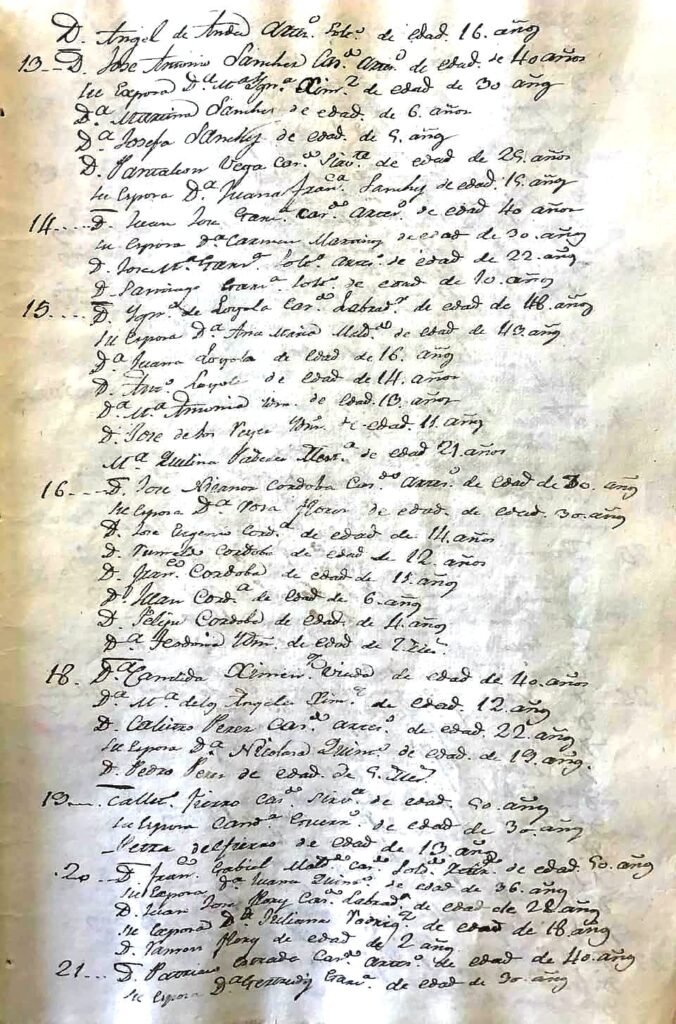 D. Angel de Andra Artes.º Solt.º de edad 16. años
13.. D. Jose Antonio Sanches Cas.do artes.º de edad de 40 años
Su Espora D.ª M.ª Ygn.ª Xim.z de edad de 30 años
D.ª Martina Sanches de edad de 6. años
D.ª Josefa Sanches de edad de 5. años
D. Pantaleon Vega Cas.do de edad de 25. años
Su Espora D.ª Juana Fran.ca Sanches de edad 15. años
14.... D. Juan Jose Cas.do artes.º de edad 40 años
su Espora D.ª Carmen de edad de 30. años
D. Jose M.ª Solt.º artes.º de edad de 22. años
D. Santiago Solt.º de edad de 20. años
15.... D. Ygn.º de Loyola Cas.do Labrad.r de edad de 48. años
Su Espora D.ª Ana Maria Mald.º de edad de 43. años
D.ª Juana Loyola de edad de 16. años
D. Ant.º Loyola de edad de 14. años
D.ª M.ª Antonia Ydm. de edad. 13. años
D. Jose de los Reyes Ydm. de edad. 11. años
M.ª Paulina de edad 21. años
16.... D. Jose Nicanor Cordoba Cas.do artes.º de edad de 30. años
Su Espora D.ª Rosa Flores de edad. de edad. 30. años
D. Jose Eugenio Cord.ª de edad de 14. años
D. Cordoba de edad de 12. años
D. Fran.co Cordoba de edad de 15. años
D. Juan Cord.ª de edad de 6. años
D. Felipe Cordoba de edad de 4. años
D.ª Ydm. de edad de
18. D.ª Candida Ximen.z Viuda de edad de 40. años
D.ª M.ª de los Angeles Xim.z de edad. 12. años
D. Calisto Perez Cas.do artes.º de edad. 22. años
Su Espora D.ª Nicolasa Quin.º de edad. de 19. años.
D. Pedro Perez de edad de 5.
de edad. 50. años
su Espora de edad de 30. años
Petra de edad de 13. años
20.. D. Fran.co Gabiel Mald.do Cas.do Sold.do de edad. 50. años
su Espora D.ª Juana Quin.º de edad de 36. años
D. Juan Jose Flory Cas.do Labrad.r de edad de 22. años
su Espora D.ª Juliana Rodrig.z de edad de 18. años
D. Ramon Flory de edad de 2 años
21... D. Patricio Cas.do Artes.º de edad de 40. años
su Espora D.ª Gertrudis de edad de 30. años